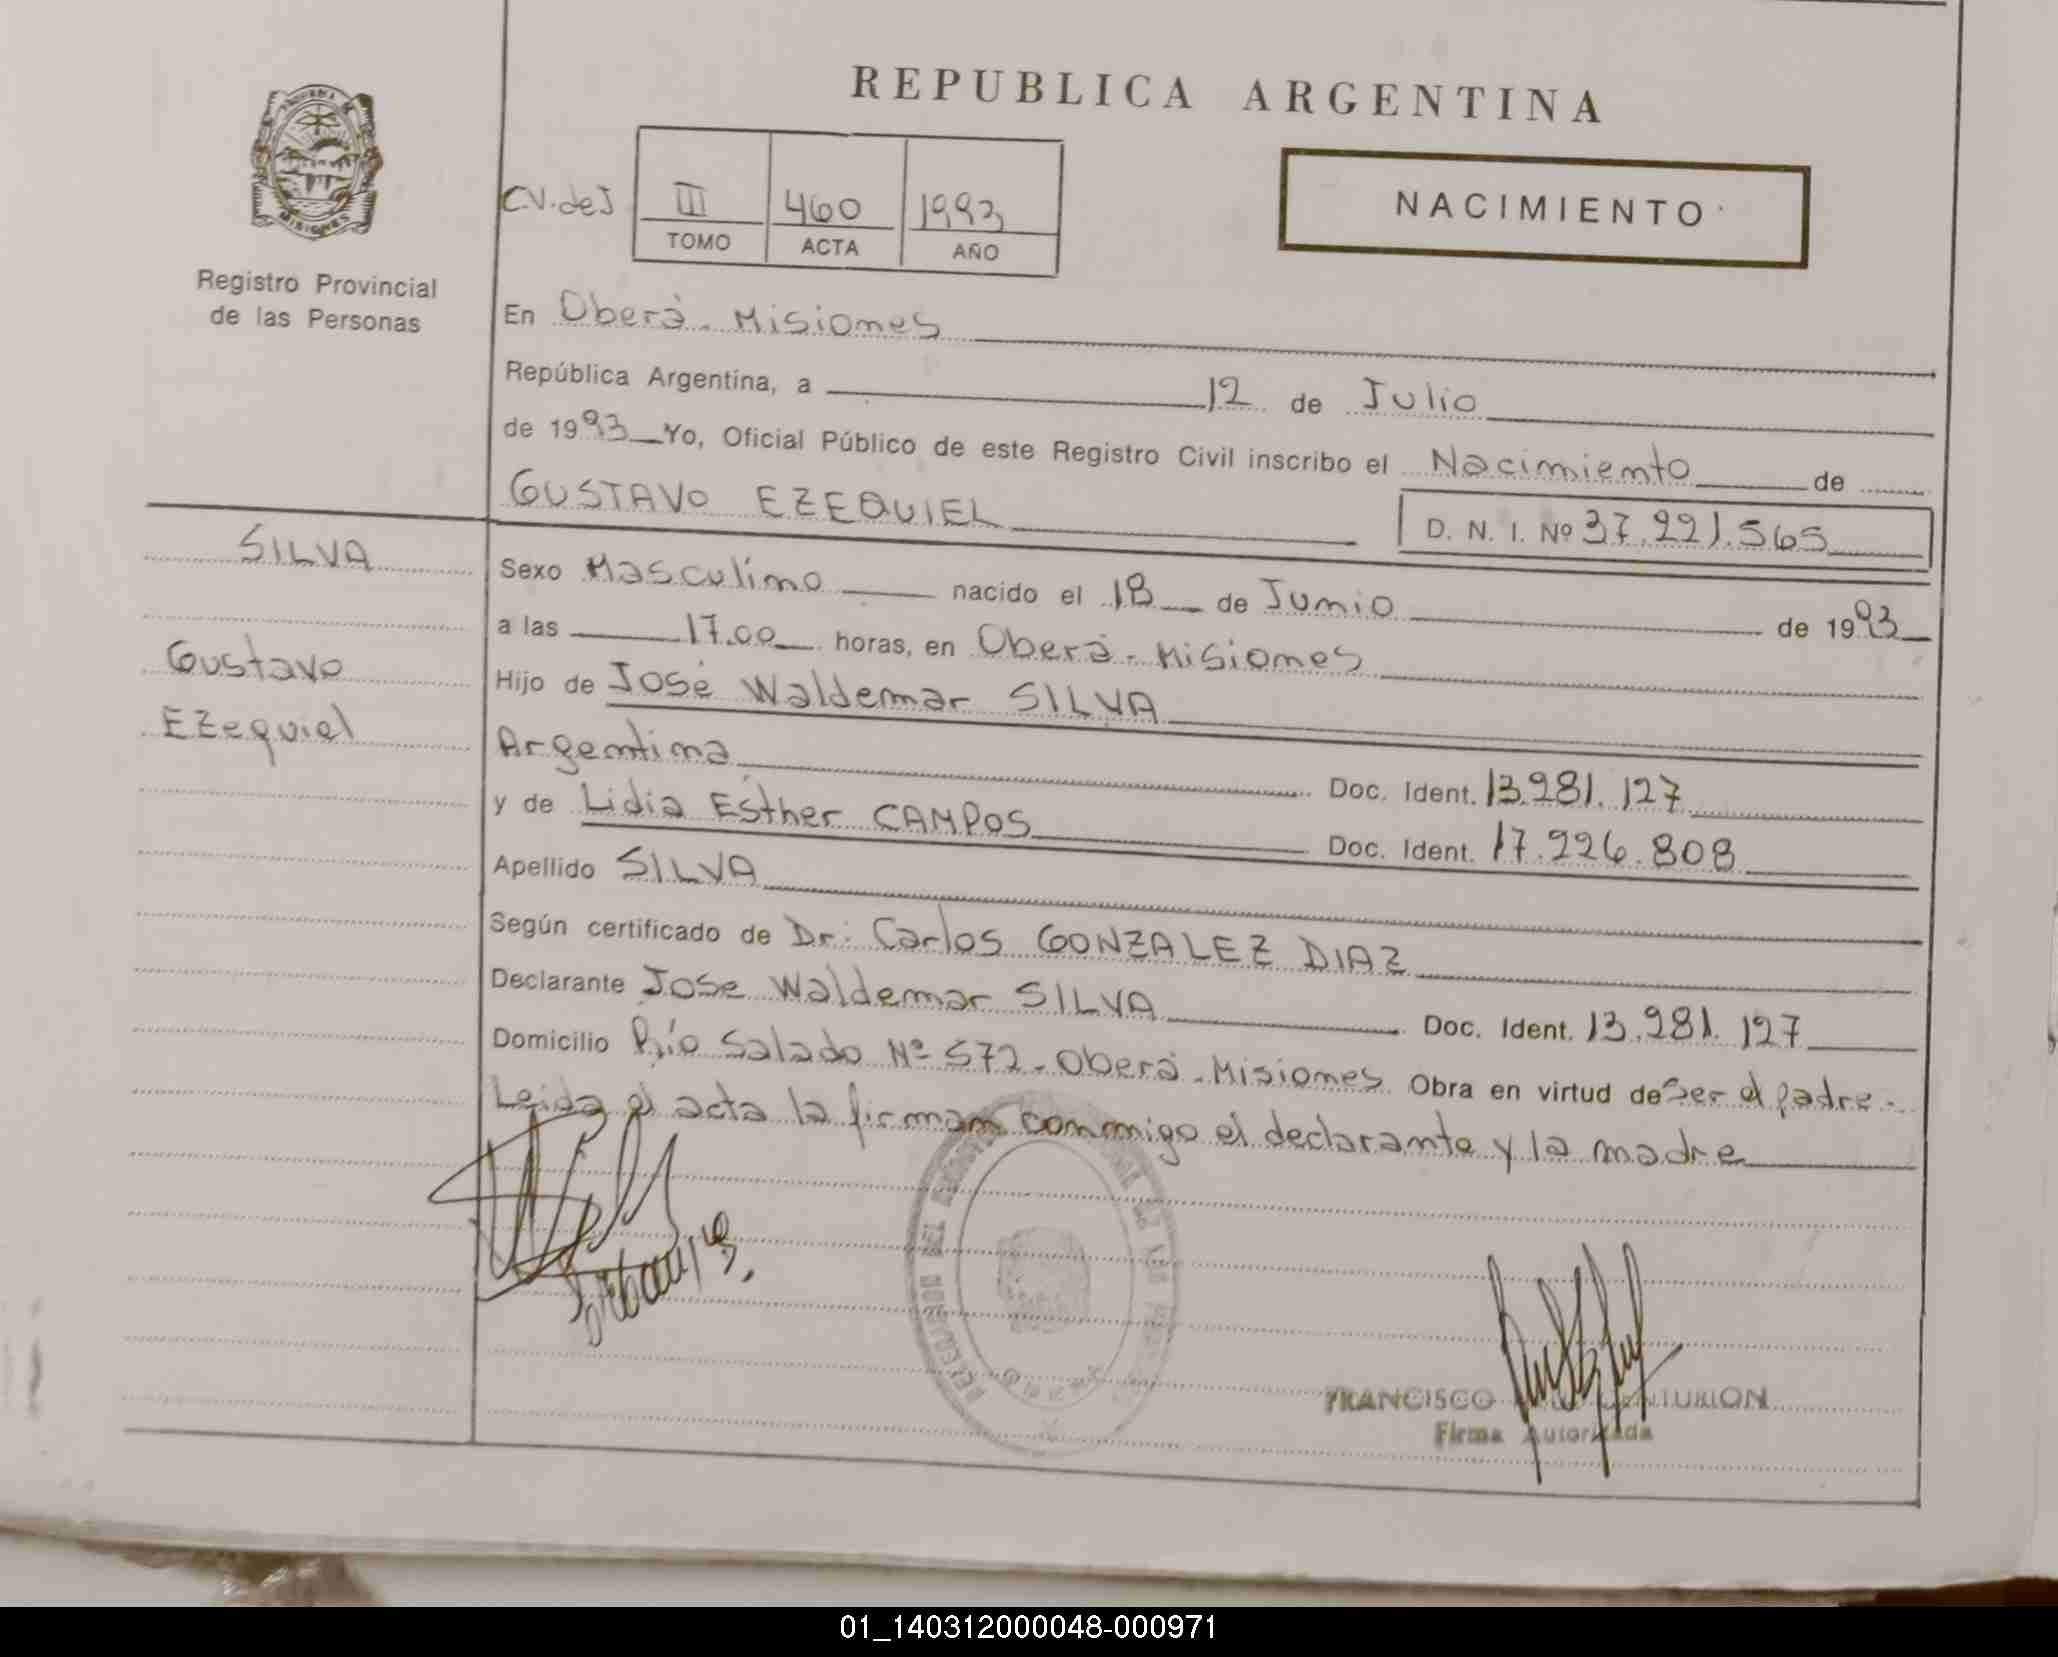 REPUBLICA ARGENTINA
NACIMIENTO
C.V. de J
III 460 1993
TOMO ACTA AÑO
Registro Provincial
de las Personas
En Oberá - Misiones
República Argentina, a 12 de Julio
de 1993 Yo, Oficial Público de este Registro Civil inscribo el Nacimiento de
GUSTAVO EZEQUIEL
D. N. I. Nº 37.221.565
SILVA
Gustavo
EZequiel
Sexo Masculino nacido el 18 de Junio de 1993
a las 17.00 horas, en Oberá - Misiones
Hijo de José Waldemar SILVA
Argentina Doc. Ident. 13.281.127
y de Lidia Esther CAMPOS Doc. Ident. 17.226.808
Apellido SILVA
Según certificado de Dr. Carlos GONZALEZ DIAZ
Declarante Jose Waldemar SILVA Doc. Ident. 13.281.127
Domicilio Río Salado Nº 572 - Oberá - Misiones Obra en virtud de Ser el padre -
Leida el acta la firman conmigo el declarante y la madre
FRANCISCO
Firma Autorizada
01_140312000048-000971